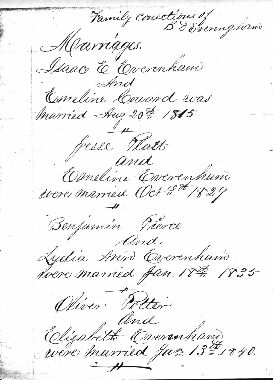 Family connections of
Marriages.
Isaac E Evrenham
And
Emeline Emward was
Married Aug 20th 1815
Jesse Platt
and
Emeline Evrenham
were married Oct 8th 1827
Benjamin Pierce
And.
Lydia Ann Evrenham
were married Jan. 18th 1835
Oliver Potter
And
Elizabeth Evrenham
were married Jan 13th 1840.